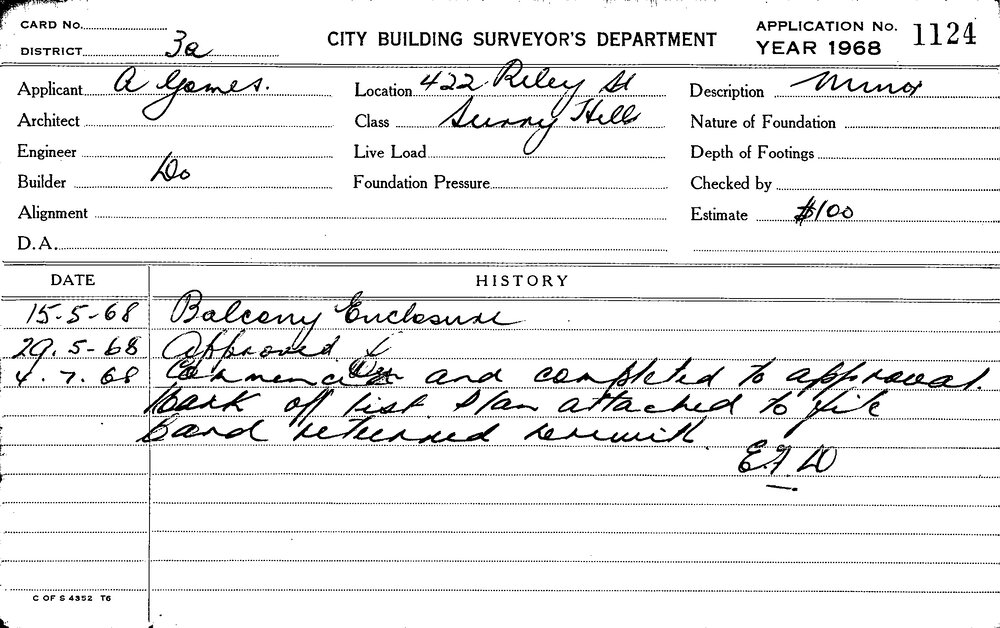 CARD No.
DISTRICT 3a
CITY BUILDING SURVEYOR'S DEPARTMENT
APPLICATION No. 1124
YEAR 1968
Applicant A Gomes.
Location 422 Riley St
Description Minor
Architect
Class Surry Hills
Nature of Foundation
Engineer
Live Load
Depth of Footings
Builder Do
Foundation Pressure
Checked by
Alignment
Estimate $100
D.A.
DATE
HISTORY
15-5-68 Balcony Enclosure
29.5-68 Approved
4.7.68 and completed to approval.
Mark off list. Plan attached to file
card returned herewith.
C OF S 4352 T6